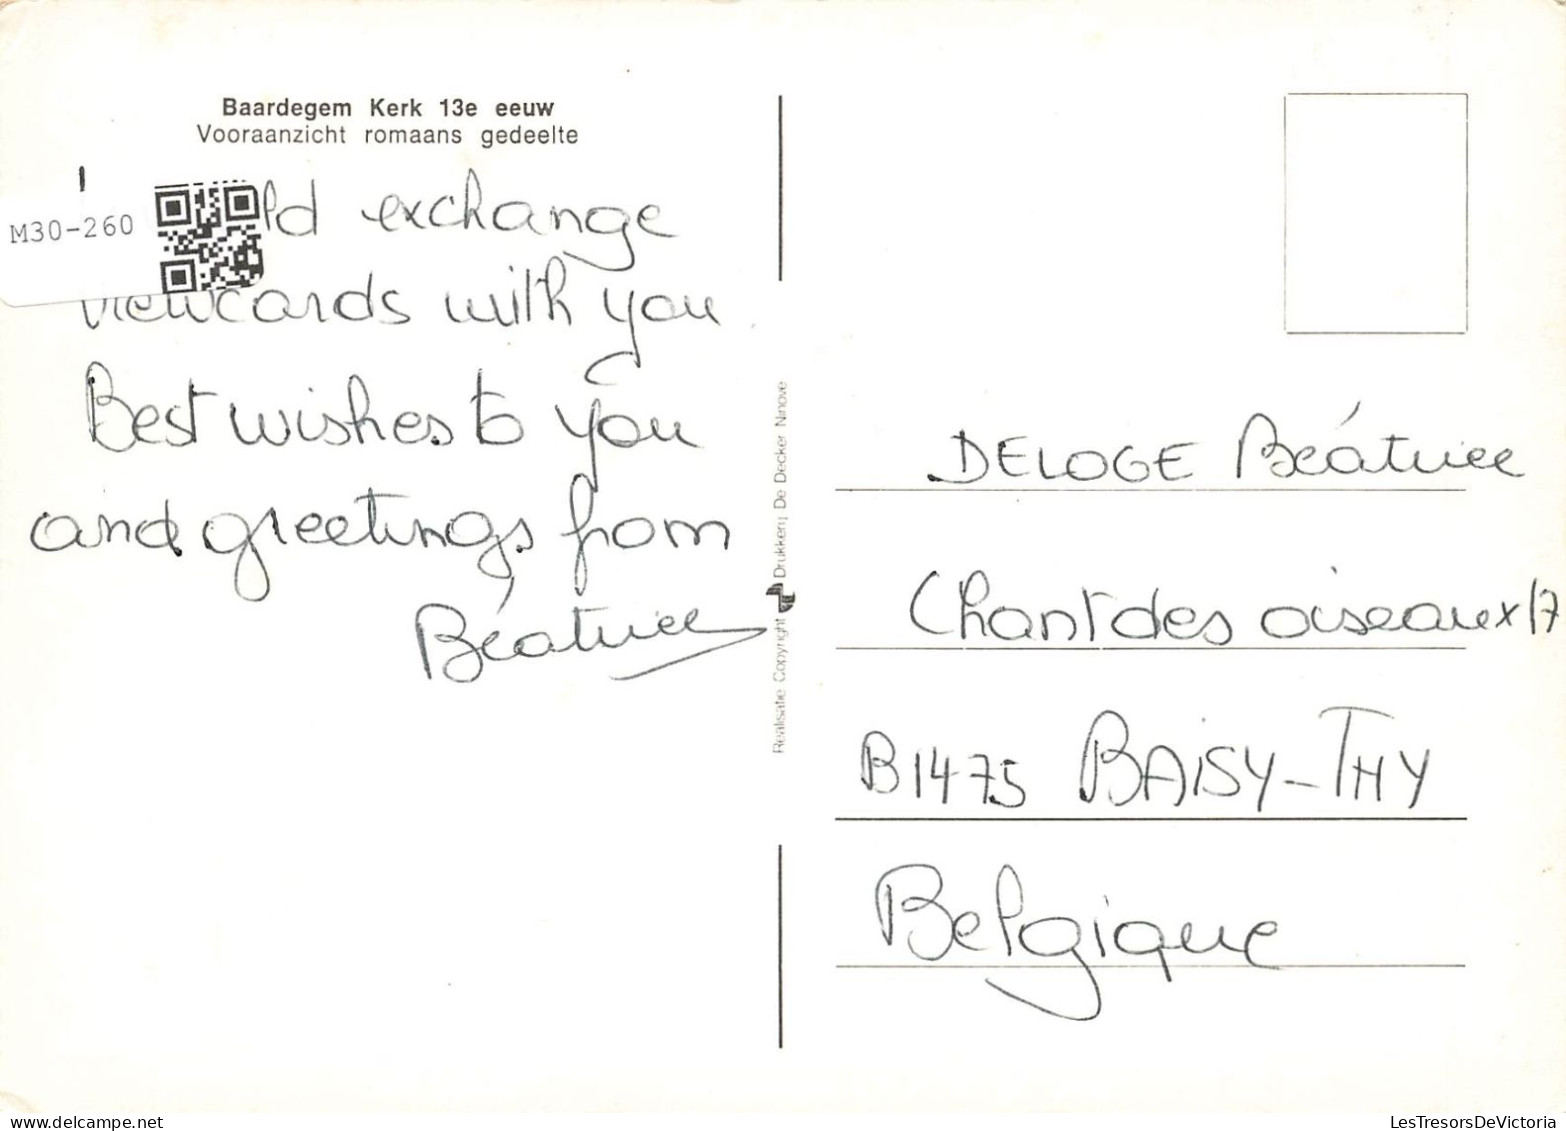 Baardegem Kerk 13e eeuw
Vooraanzicht romaans gedeelte
M30-260
exchange
viewcards with you
Best wishes to you
and greetings from
Béatrice
Realisatie Copyright Drukkerij De Decker Ninove
DELOGE Béatrice
Chant des oiseaux 17
B1475 BAISY-THY
Belgique
LesTresorsDeVictoria